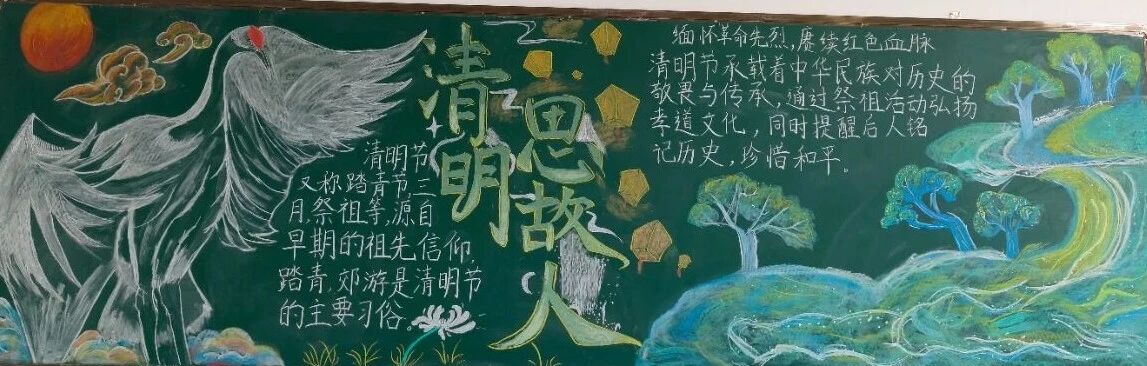 清明
思故人
清明节
又称踏青节,三
月,祭祖等,源自
早期的祖先信仰,
踏青,郊游是清明节
的主要习俗。
缅怀革命先烈,赓续红色血脉
清明节承载着中华民族对历史的
敬畏与传承,通过祭祖活动弘扬
孝道文化,同时提醒后人铭
记历史,珍惜和平。